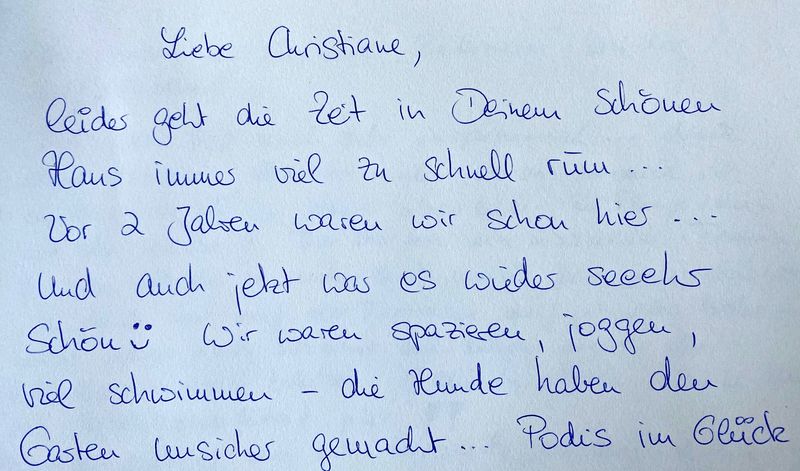 Liebe Christiane,
leider geht die Zeit in Deinem schönen
Haus immer viel zu schnell rum...
Vor 2 Jahren waren wir schon hier...
Und auch jetzt war es wieder seeehr
schön Wir waren spazieren, joggen,
viel schwimmen - die Hunde haben den
Garten unsicher gemacht... Podis im Glück